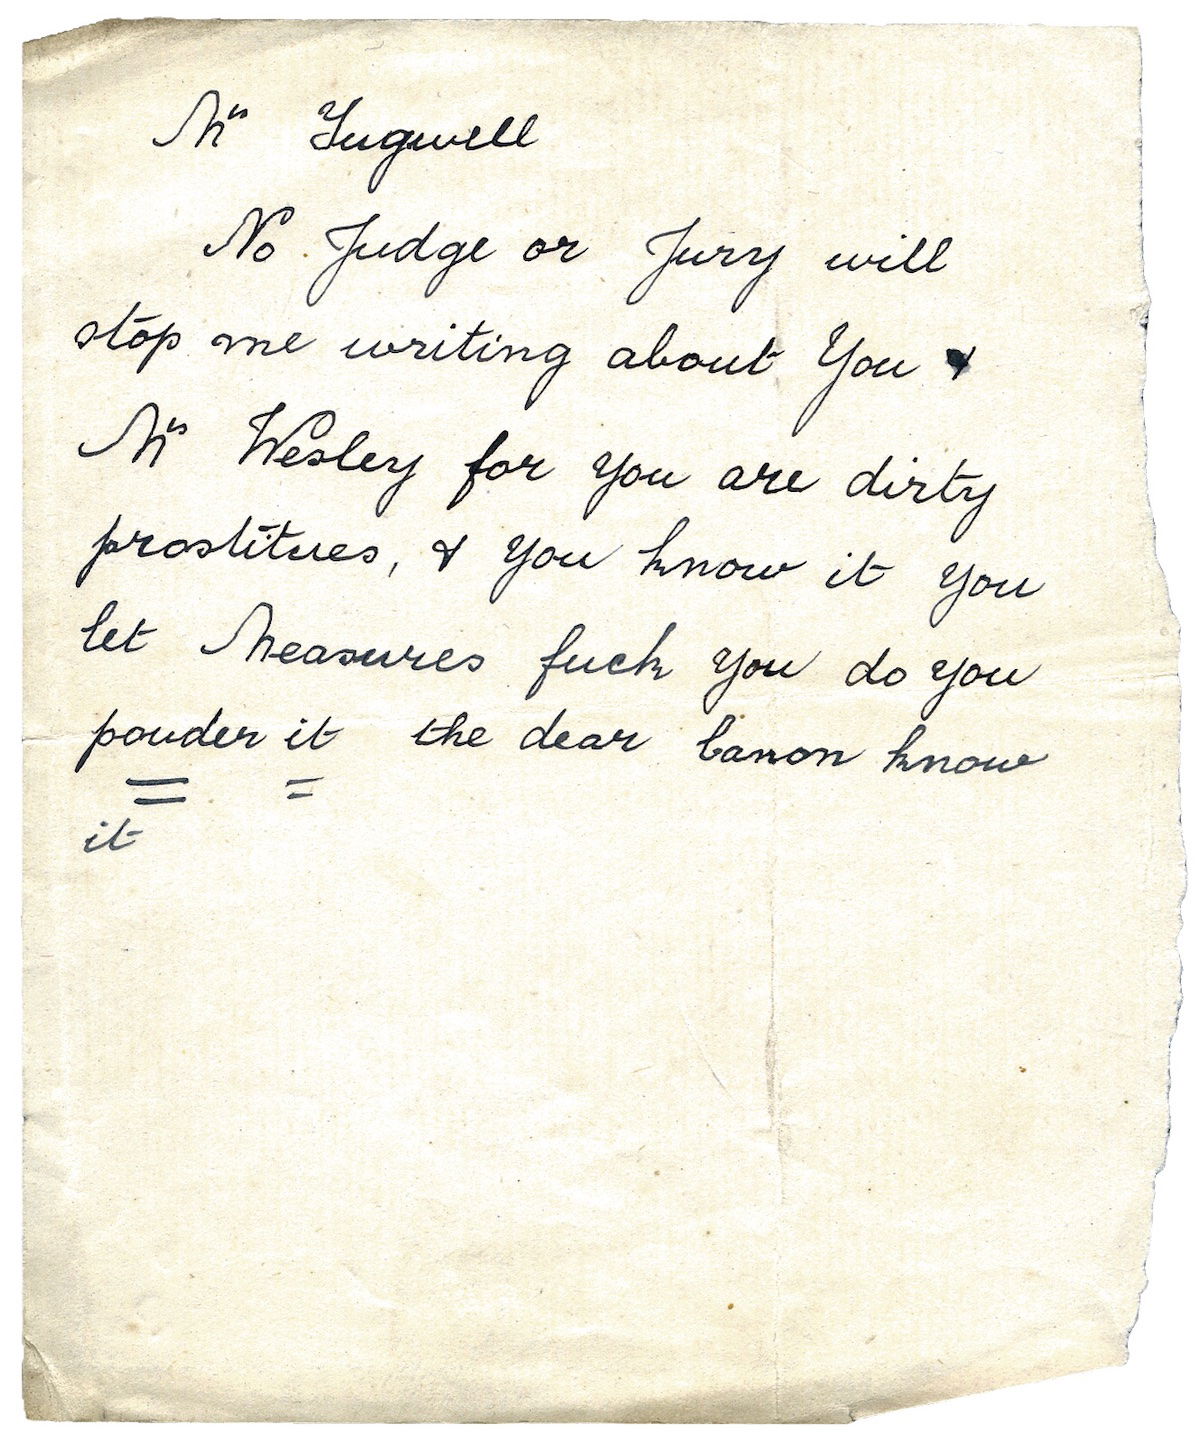 Mrs Tugwell
No Judge or Jury will
stop me writing about You &
Mrs Wesley for you are dirty
prostitues, & you know it you
let Measures fuck you do you
pouder it the dear Canon know
it